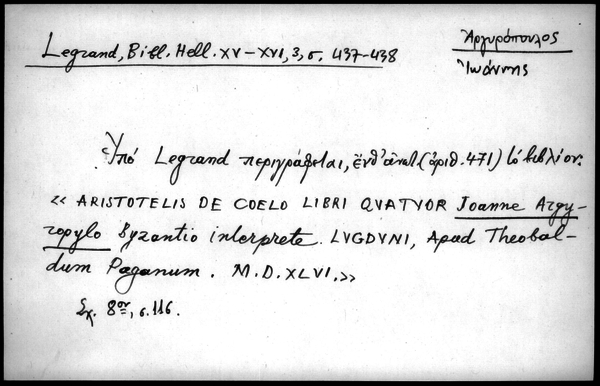 Legrand, Bibl. Hell. XV–XVI, 3, σ. 437-438
Ἀργυρόπουλος
Ἰωάννης
Ὑπό Legrand περιγράφεται, ἔνθ' ἀνωτ. (ἀριθ. 471) τό βιβλίον:
« ARISTOTELIS DE COELO LIBRI QVATVOR Joanne Argy-
ropylo Byzantio interprete. LVGDVNI, Apud Theobal-
dum Paganum. M.D.XLVI.»
Σχ. 8ον, σ. 116.